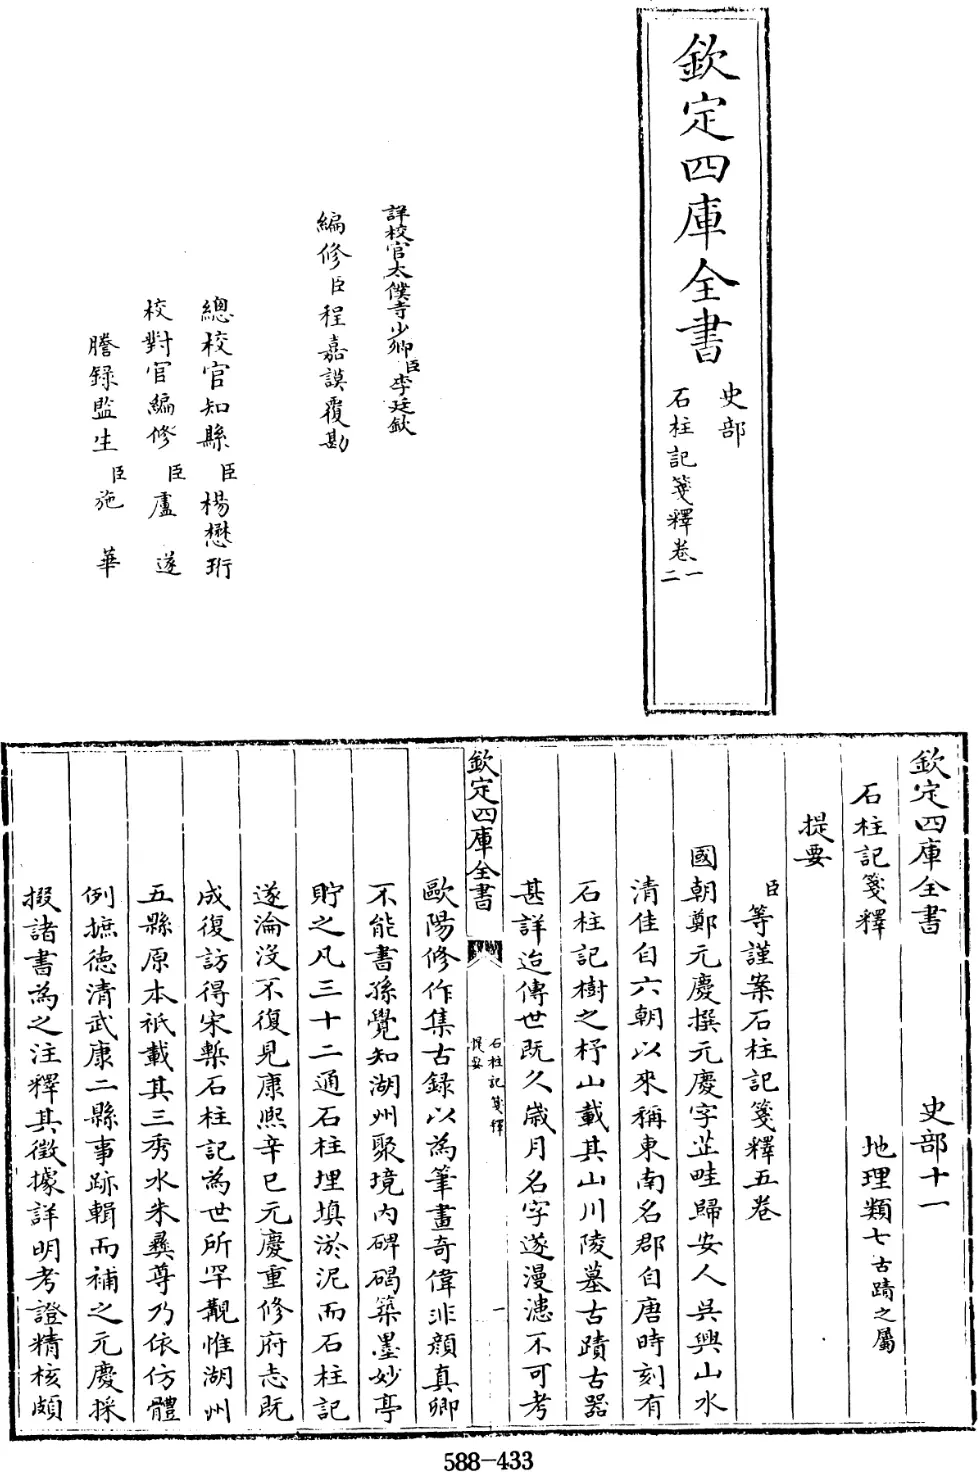 欽定四庫全書
史部
石柱記箋釋卷一
二
詳校官太僕寺少卿臣李廷欽
編修臣程嘉謨覆勘
總校官知縣臣楊懋珩
校對官編修臣盧遂
謄錄監生臣施華
欽定四庫全書 史部十一
石柱記箋釋 地理類七古蹟之屬
提要
臣等謹案石柱記箋釋五卷
國朝鄭元慶撰元慶字芷畦歸安人吳興山水
清佳自六朝以來稱東南名郡自唐時刻有
石柱記樹之杼山載其山川陵墓古蹟古器
甚詳迨傳世既久歲月名字遂漫漶不可考
欽定四庫全書 石柱記箋釋 提要 一
歐陽修作集古錄以為筆畫奇偉非顏真卿
不能書孫覺知湖州聚境內碑碣築墨妙亭
貯之凡三十二通石柱埋填淤泥而石柱記
遂淪沒不復見康熙辛巳元慶重修府志既
成復訪得宋槧石柱記為世所罕覯惟湖州
五縣原本祇載其三秀水朱彝尊乃依仿體
例摭德清武康二縣事跡輯而補之元慶採
掇諸書為之注釋其徵據詳明考證精核頗
588-433